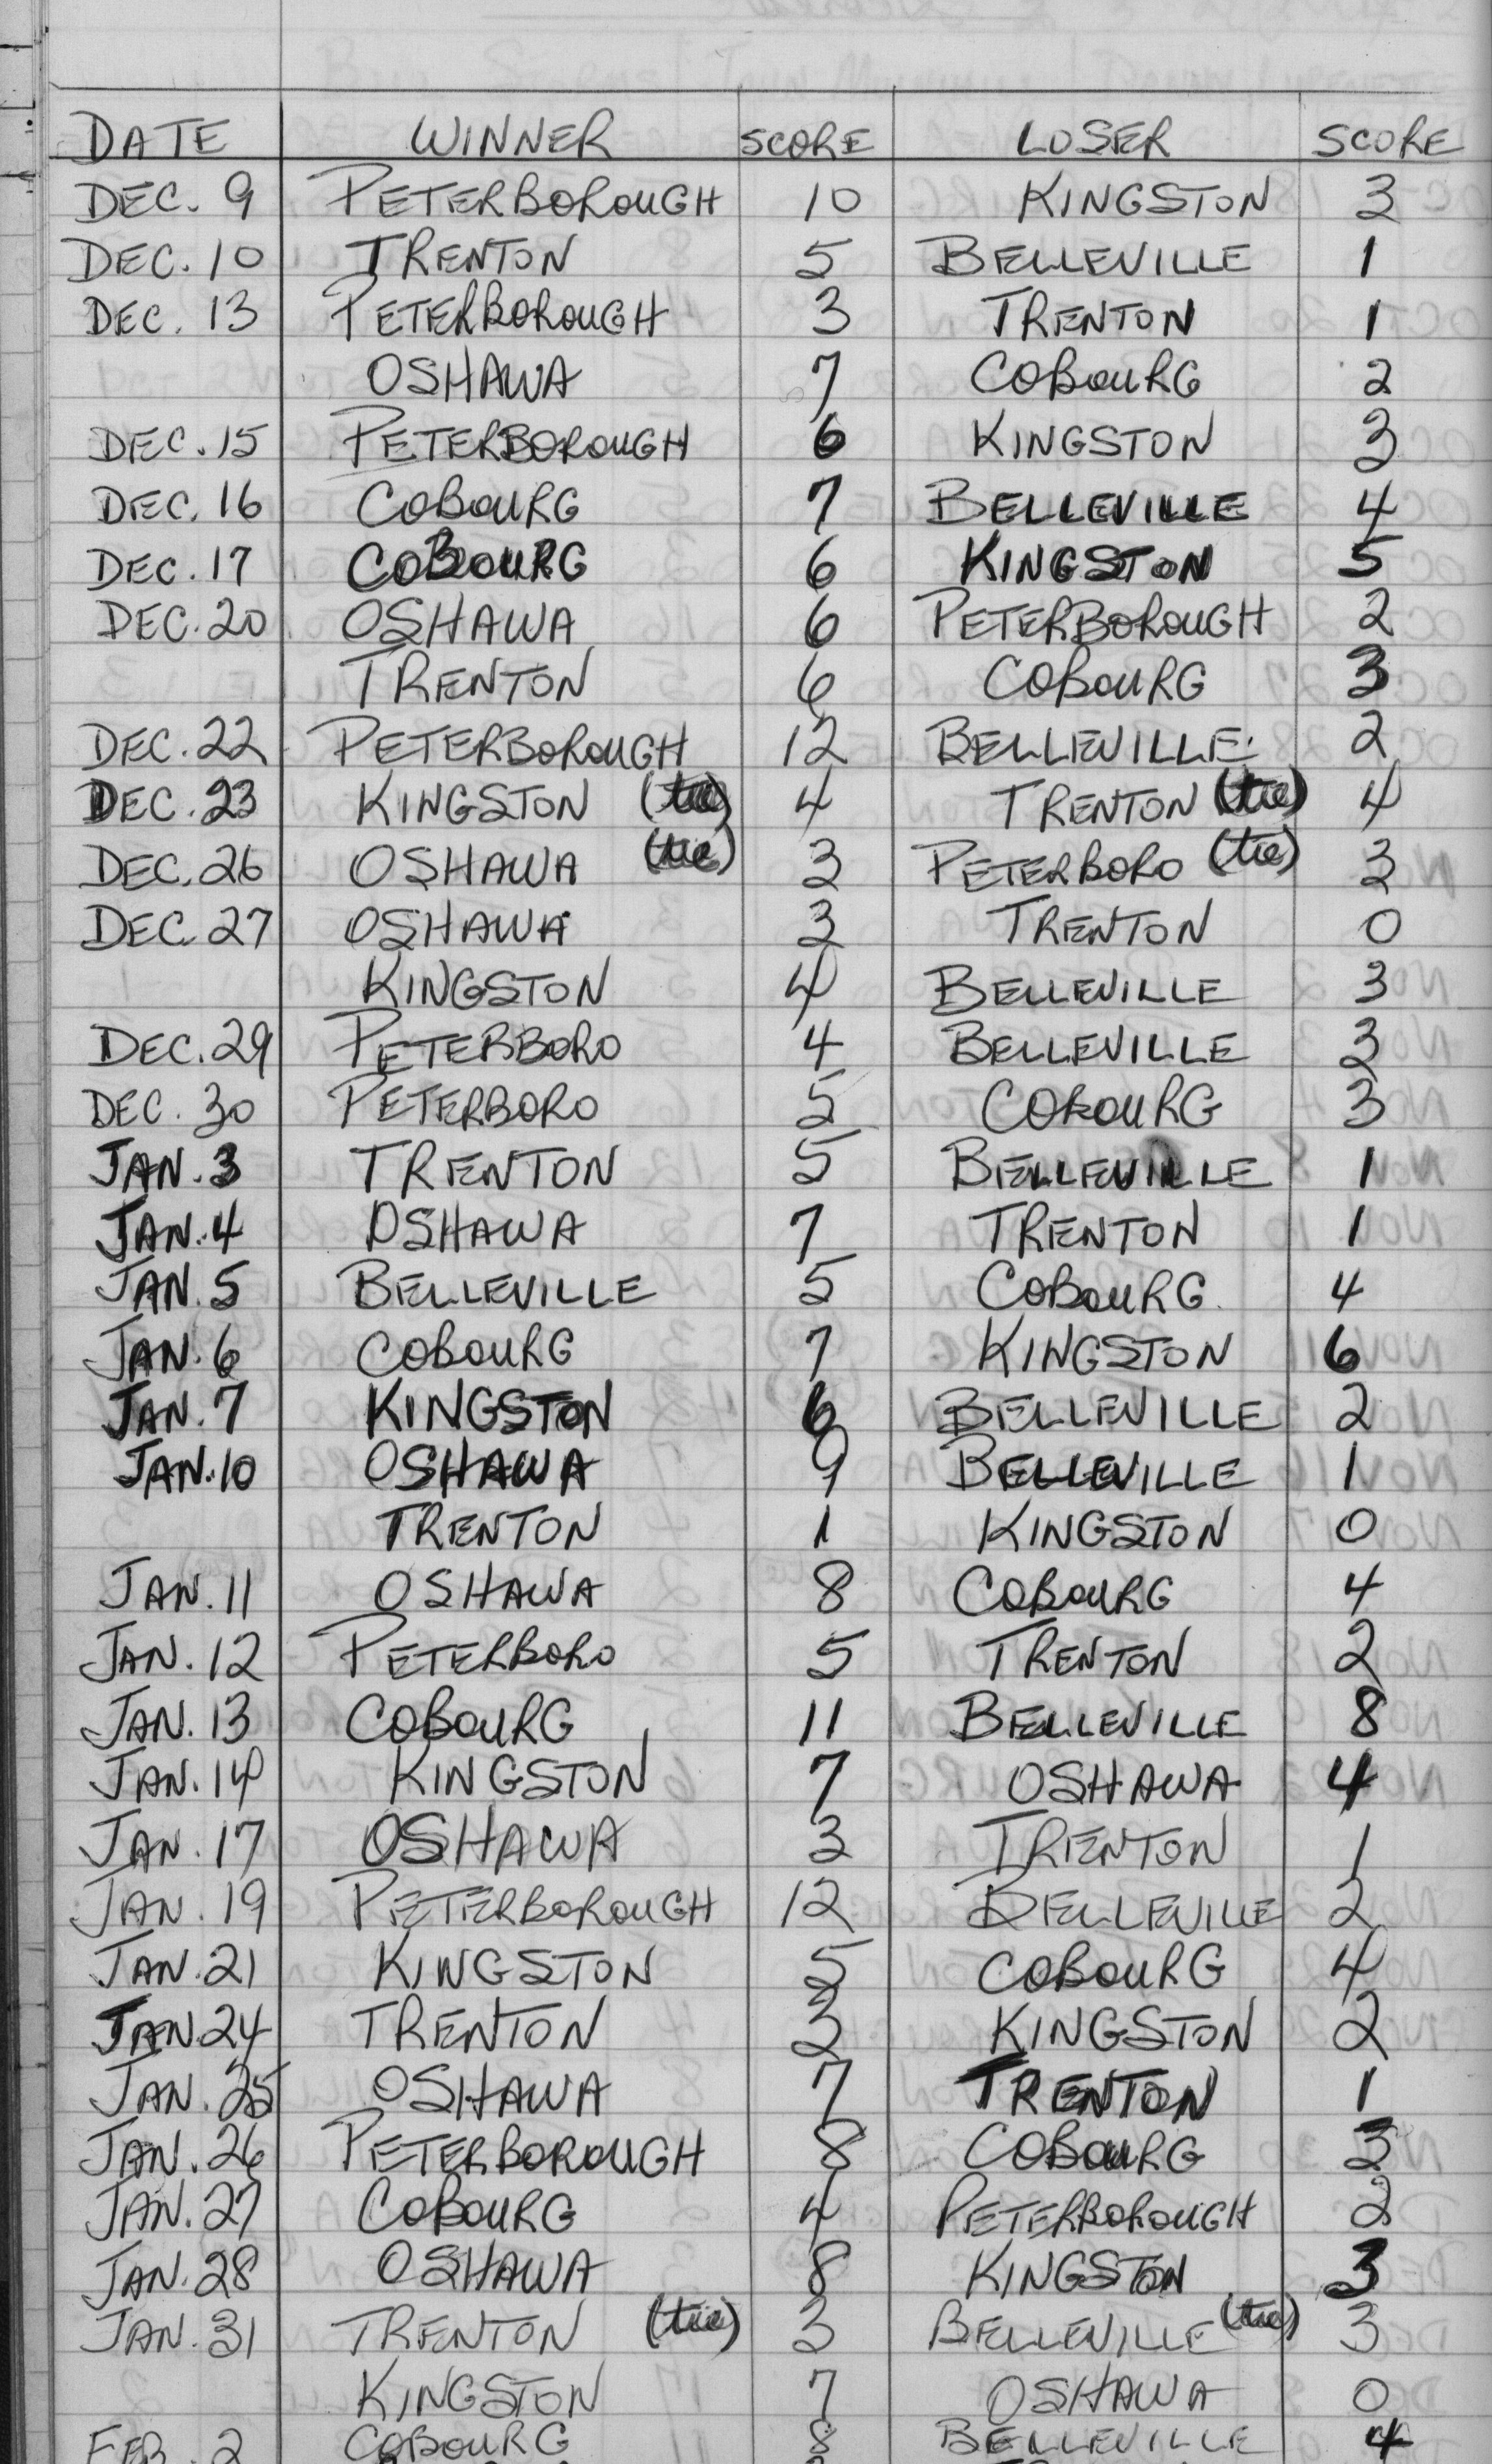 DATE WINNER SCORE LOSER SCORE
DEC. 9 PETERBOROUGH 10 KINGSTON 3
DEC. 10 TRENTON 5 BELLEVILLE 1
DEC. 13 PETERBOROUGH 3 TRENTON 1
OSHAWA 7 COBOURG 2
DEC. 15 PETERBOROUGH 6 KINGSTON 3
DEC. 16 COBOURG 7 BELLEVILLE 4
DEC. 17 COBOURG 6 KINGSTON 5
DEC. 20 OSHAWA 6 PETERBOROUGH 2
TRENTON 6 COBOURG 3
DEC. 22 PETERBOROUGH 12 BELLEVILLE 2
DEC. 23 KINGSTON (tie) 4 TRENTON (tie) 4
DEC. 26 OSHAWA (tie) 3 PETERBORO (tie) 3
DEC. 27 OSHAWA 3 TRENTON 0
KINGSTON 4 BELLEVILLE 3
DEC. 29 PETERBORO 4 BELLEVILLE 3
DEC. 30 PETERBORO 5 COBOURG 3
JAN. 3 TRENTON 5 BELLEVILLE 1
JAN. 4 OSHAWA 7 TRENTON 1
JAN. 5 BELLEVILLE 5 COBOURG 4
JAN. 6 COBOURG 7 KINGSTON 6
JAN. 7 KINGSTON 6 BELLEVILLE 2
JAN. 10 OSHAWA 9 BELLEVILLE 1
TRENTON 1 KINGSTON 0
JAN. 11 OSHAWA 8 COBOURG 4
JAN. 12 PETERBORO 5 TRENTON 2
JAN. 13 COBOURG 11 BELLEVILLE 8
JAN. 14 KINGSTON 7 OSHAWA 4
JAN. 17 OSHAWA 3 TRENTON 1
JAN. 19 PETERBOROUGH 12 BELLEVILLE 2
JAN. 21 KINGSTON 5 COBOURG 4
JAN. 24 TRENTON 3 KINGSTON 2
JAN. 25 OSHAWA 7 TRENTON 1
JAN. 26 PETERBOROUGH 8 COBOURG 3
JAN. 27 COBOURG 4 PETERBOROUGH 2
JAN. 28 OSHAWA 8 KINGSTON 3
JAN. 31 TRENTON (tie) 3 BELLEVILLE (tie) 3
KINGSTON 7 OSHAWA 0
FEB. 2 COBOURG 8 BELLEVILLE 4